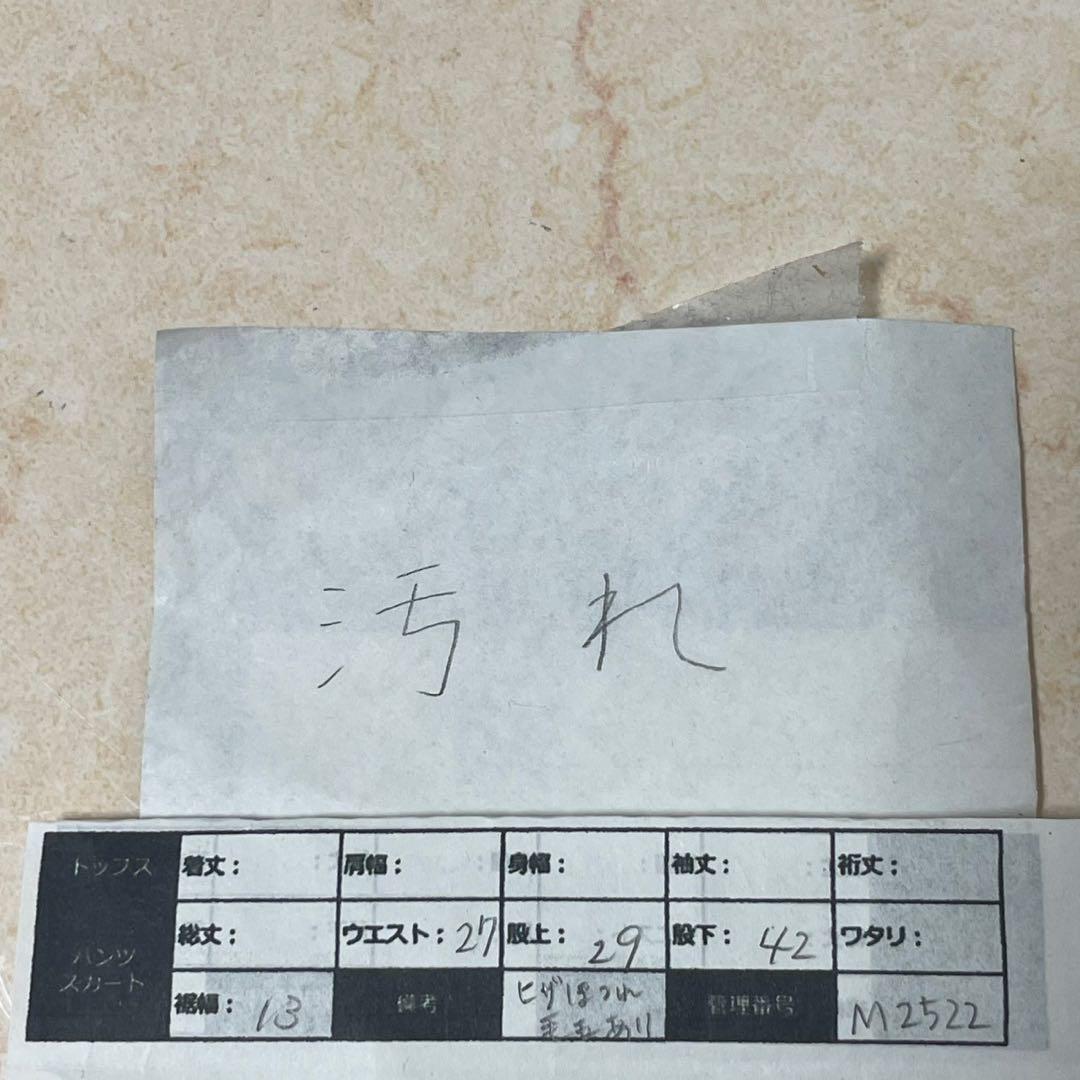 汚れ
トップス 着丈: 肩幅: 身幅: 袖丈: 裄丈:
パンツ スカート 総丈: ウエスト: 27 股上: 29 股下: 42 ワタリ:
裾幅: 13 備考 ヒザほつれ 管理番号 M2522
あり